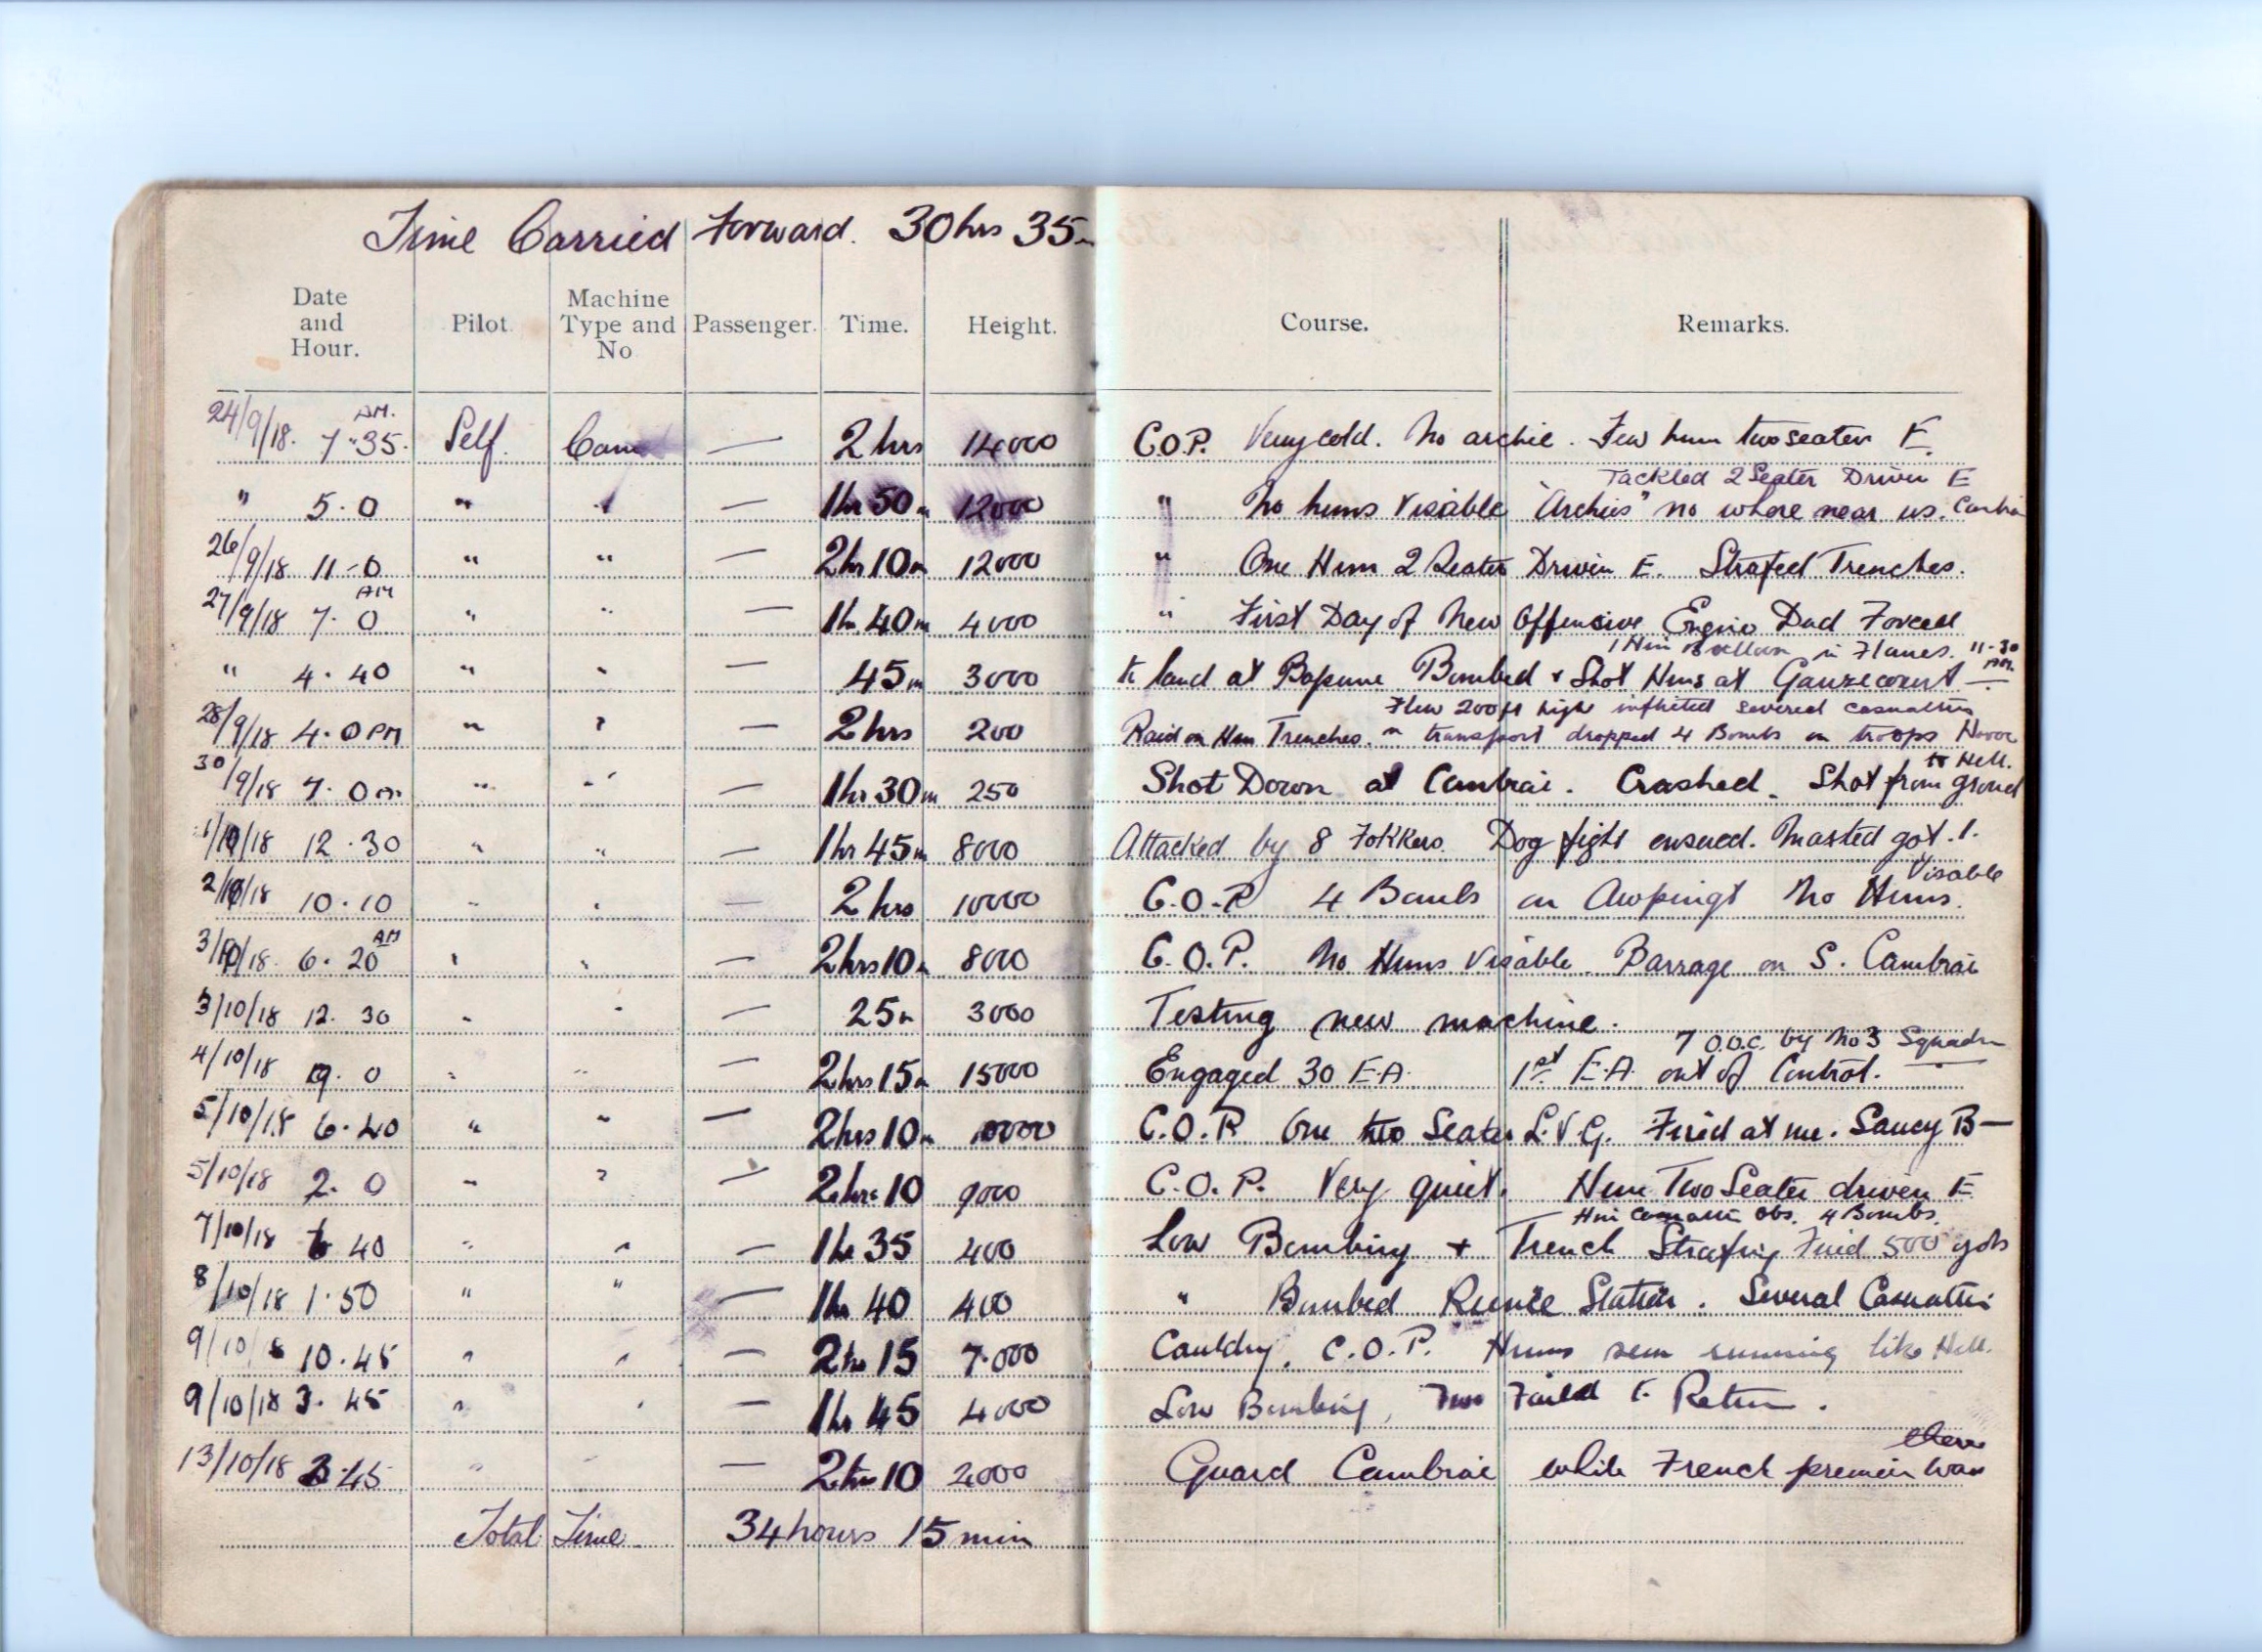 Time Carried Forward. 30 hrs 35m
Date and Hour. Pilot. Machine Type and No Passenger. Time. Height. Course. Remarks.
24/9/18. 7.35. AM. Self. Cam — 2 hrs 14000 C.O.P. Very cold. No archie. Few hun two seaters E.
Tackled 2 Seater Driven E
" 5.0 " " — 1hr 50m 12000 " No huns Visable "Archies" no where near us.
26/9/18 11-0 " " — 2hr 10m 12000 " One Hun 2 Seater Driven E. Strafed Trenches.
27/9/18 7.0 AM " " — 1hr 40m 4000 " First Day of New Offensive Engine Dud Forced
1 Hun Balloon in Flames. 11-30 AM.
" 4.40 " " — 45m 3000 to land at Bapume Bombed + Shot Huns at Gauzecourt —
Flew 200ft high inflicted several casualties
28/9/18 4.0 PM " " — 2 hrs 200 Raid on Hun Trenches. transport dropped 4 Bombs on troops
30/9/18 7.0 " " — 1hr 30m 250 Shot Down at Cambrai. Crashed. Shot from ground to Hell.
1/10/18 12.30 " " — 1hr 45m 8000 Attacked by 8 Fokkers. Dog fight ensued. Masted got 1.
2/10/18 10.10 " " — 2 hrs 10000 C.O.P 4 Bombs on Awpingt No Huns. Visable
3/10/18. 6.20 AM " " — 2hrs 10m 8000 C.O.P. No Huns Visable. Barrage on S. Cambrai
3/10/18 12.30 " " — 25m 3000 Testing new machine.
7 O.O.C. by No 3 Squadn
4/10/18 9.0 " " — 2hrs 15m 15000 Engaged 30 E.A. 1st E.A. out of Control.
5/10/18 6.40 " " — 2hrs 10m 10000 C.O.P. One two Seater L.V.G. Fired at me. Saucy B—
5/10/18 2.0 " " — 2hrs 10 9000 C.O.P. Very quiet. Hun Two Seater driven E
Obs. 4 Bombs.
7/10/18 6 40 " " — 1hr 35 400 Low Bombing + Trench Strafing Fired 500 yds
8/10/18 1.50 " " — 1hr 40 400 " Bombed Station. Several Casualties
9/10/18 10.45 " " — 2hr 15 7.000 Cauldry. C.O.P. Huns seen running like Hell.
9/10/18 3.45 " " — 1hr 45 4000 Low Bombing, Two Failed to Return.
13/10/18 3.45 " " — 2hrs 10 2000 Guard Cambrai while French premier was there
Total Time 34 hours 15 min